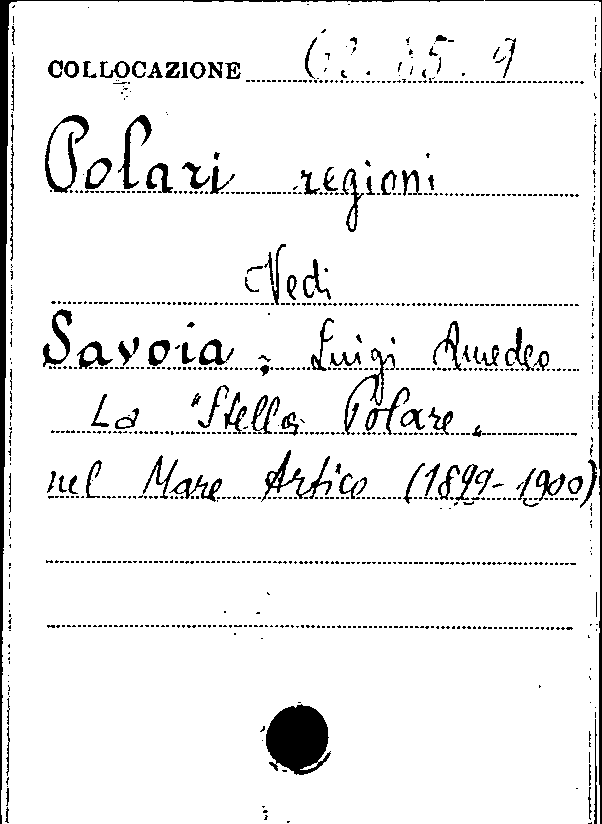 COLLOCAZIONE
Polari regioni
Vedi
Savoia, Luigi Amedeo
La "Stella Polare"
nel Mare Artico (1899-1900)